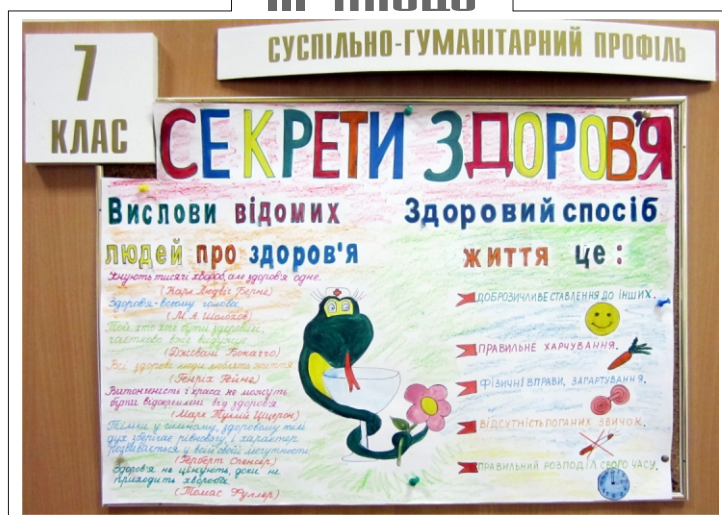 7
КЛАС
СУСПІЛЬНО-ГУМАНІТАРНИЙ ПРОФІЛЬ
СЕКРЕТИ ЗДОРОВ'Я
Вислови відомих
людей про здоров'я
Існують тисячі хвороб, але здоров'я одне.
(Карл Людвіг Берне)
Здоров'я - всьому голова.
(М. А. Шолохов)
Той хто хоче бути здоровим,
частково вже видужує.
(Джовані Бокаччо)
Всі здорові люди люблять життя
(Генріх Гейне)
Витонченість і краса не можуть
бути відокремлені від здоров'я
(Марк Тулій Цицерон)
Тільки у сильному, здоровому тілі
дух зберігає рівновагу, і характер
розвивається у всій своїй могутності
(Герберт Спенсер)
Здоров'я не цінують, доки не
приходить хвороба
(Томас Фуллер)
Здоровий спосіб
життя це:
ДОБРОЗИЧЛИВЕ СТАВЛЕННЯ ДО ІНШИХ.
ПРАВИЛЬНЕ ХАРЧУВАННЯ.
ФІЗИЧНІ ВПРАВИ, ЗАГАРТУВАННЯ.
ВІДСУТНІСТЬ ПОГАНИХ ЗВИЧОК.
ПРАВИЛЬНИЙ РОЗПОДІЛ СВОГО ЧАСУ.